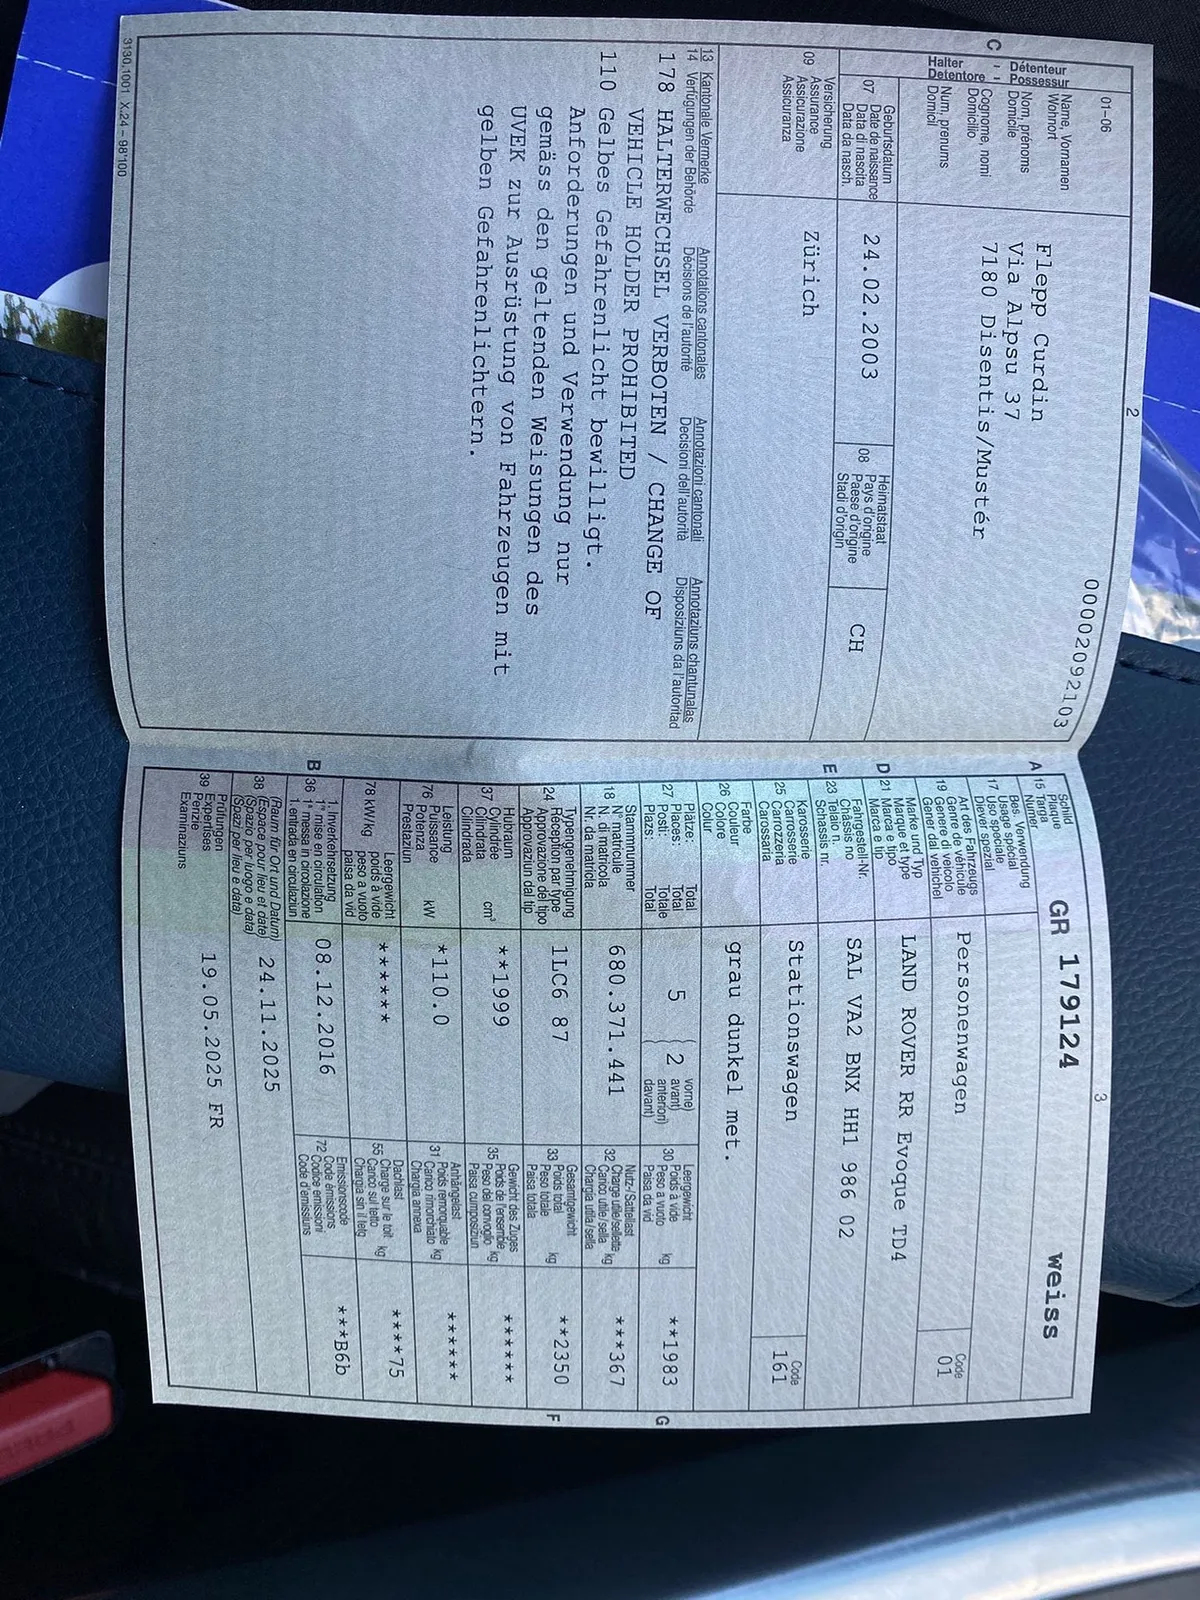 01-06
2
00002092103
C
Halter - Détenteur
Detentore - Possessur
Name, Vornamen
Wohnort
Nom, prénoms
Domicile
Cognome, nomi
Domicilio
Num, prenums
Domicil
Flepp Curdin
Via Alpsu 37
7180 Disentis/Mustér
07
Geburtsdatum
Date de naissance
Data di nascita
Data da nasch.
24.02.2003
08
Heimatstaat
Pays d'origine
Paese d'origine
Stadi d'origin
CH
09
Versicherung
Assurance
Assicurazione
Assicuranza
Zürich
13 Kantonale Vermerke Annotations cantonales Annotazioni cantonali Annotaziuns chantunalas
14 Verfügungen der Behörde Décisions de l'autorité Decisioni dell'autorità Disposiziuns da l'autoritad
178 HALTERWECHSEL VERBOTEN / CHANGE OF
VEHICLE HOLDER PROHIBITED
110 Gelbes Gefahrenlicht bewilligt.
Anforderungen und Verwendung nur
gemäss den geltenden Weisungen des
UVEK zur Ausrüstung von Fahrzeugen mit
gelben Gefahrenlichtern.
3130.1001 X.24 – 98'100
3
A 15
Schild
Plaque
Targa
Numer
GR 179124 weiss
17
Bes. Verwendung
Usage spécial
Uso speciale
Diever spezial
19
Art des Fahrzeugs
Genre de véhicule
Genere di veicolo
Gener dal vehichel
Personenwagen
Code
01
D 21
Marke und Typ
Marque et type
Marca e tipo
Marca e tip
LAND ROVER RR Evoque TD4
E 23
Fahrgestell-Nr.
Châssis no
Telaio n.
Schassis nr.
SAL VA2 BNX HH1 986 02
25
Karosserie
Carrosserie
Carrozzeria
Carossaria
Stationswagen
Code
161
26
Farbe
Couleur
Colore
Colur
grau dunkel met.
27
Plätze: Total
Places: Total
Posti: Totale
Plazs: Total
5
2
vorne)
avant)
anteriori)
davant)
30
Leergewicht
Poids à vide
Peso a vuoto
Paisa da vid
kg
**1983
G
18
Stammnummer
N° matricule
N. di matricola
Nr. da matricla
680.371.441
32
Nutz-/Sattellast
Charge utile/sellette
Carico utile/sella
Chargia utila/sella
kg
***367
24
Typengenehmigung
Réception par type
Approvazione del tipo
Approvaziun dal tip
1LC6 87
33
Gesamtgewicht
Poids total
Peso totale
Paisa totala
kg
**2350
F
37
Hubraum
Cylindrée
Cilindrata
Cilindrada
cm³
**1999
35
Gewicht des Zuges
Poids de l'ensemble
Peso del convoglio
Paisa cumposiziun
kg
******
76
Leistung
Puissance
Potenza
Prestaziun
kW
*110.0
31
Anhängelast
Poids remorquable
Carico rimorchiato
Chargia annexa
kg
******
78 kW/kg
Leergewicht
poids à vide
peso a vuoto
paisa da vid
******
55
Dachlast
Charge sur le toit
Carico sul tetto
Chargia sin il tetg
kg
****75
B 36
1. Inverkehrsetzung
1re mise en circulation
1a messa in circolazione
1. entrada en circulaziun
08.12.2016
72
Emissionscode
Code émissions
Codice emissioni
Code d'emissiuns
***B6b
38
(Raum für Ort und Datum)
(Espace pour lieu et date)
(Spazio per luogo e data)
(Spazi per lieu e data)
24.11.2025
39
Prüfungen
Expertises
Perizie
Examinaziuns
19.05.2025 FR